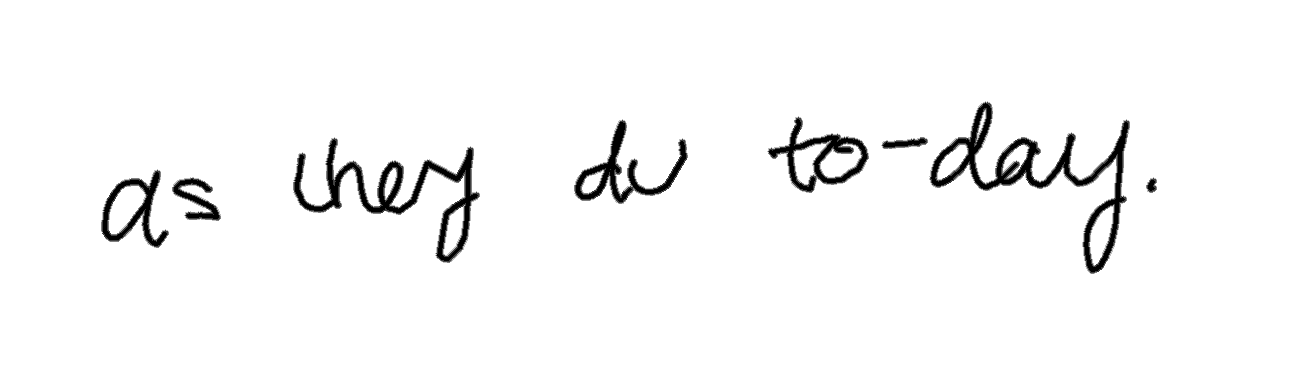 as they do to-day.